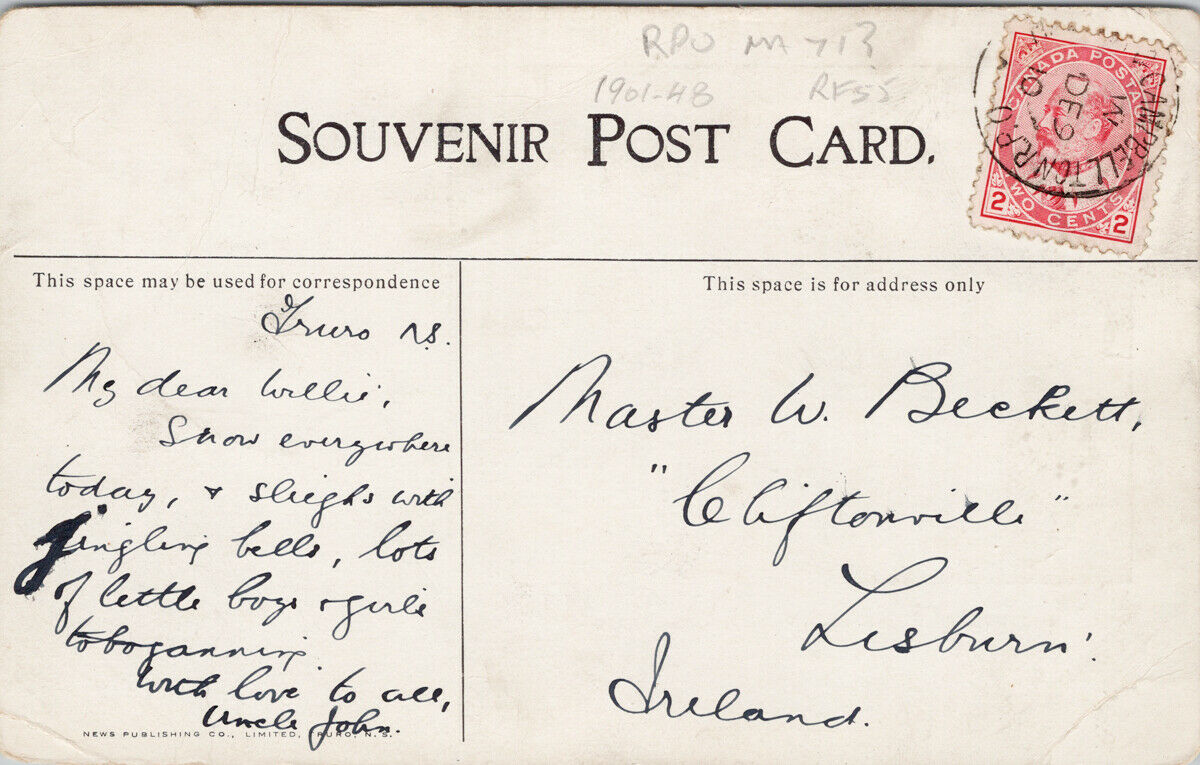 RPO MA 713
1901-48 RF55
SOUVENIR POST CARD.
CANADA POSTAGE
TWO CENTS
2 2
CAMPBELLTON
W
DE 9
10
R.P.O
This space may be used for correspondence
This space is for address only
Truro NS.
My dear Willie,
Snow everywhere
today, & sleighs with
jingling bells, lots
of little boys & girls
toboganning.
With love to all,
Uncle John.
Master W. Beckett,
"Cliftonville"
Lisburn.
Ireland.
NEWS PUBLISHING CO., LIMITED, TRURO, N.S.